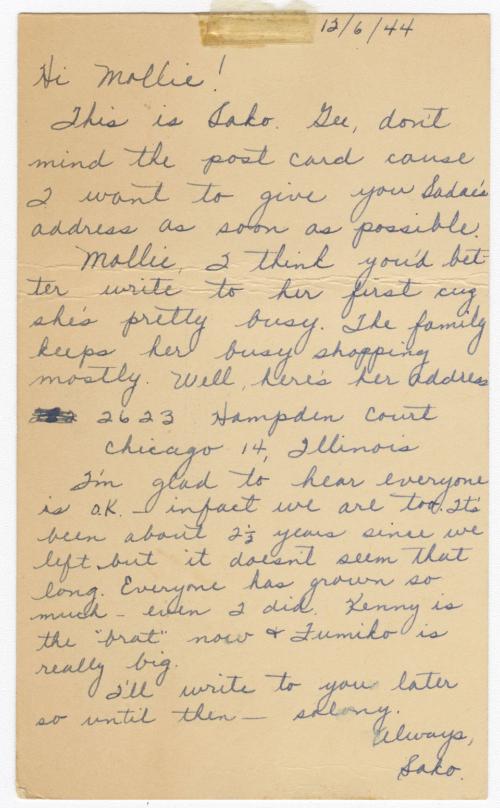 12/6/44
Hi Mollie!
This is Sako. Gee, don't
mind the post card cause
I want to give you Sadae's
address as soon as possible.
Mollie, I think you'd bet-
ter write to her first cuz
she's pretty busy. The family
keeps her busy shopping
mostly. Well, here's her address
2623 Hampden Court
Chicago 14, Illinois
I'm glad to hear everyone
is O.K. — infact we are too. It's
been about 2½ years since we
left but it doesn't seem that
long. Everyone has grown so
much — even I did. Kenny is
the "brat" now & Fumiko is
really big.
I'll write to you later
so until then — solong.
Always,
Sako.